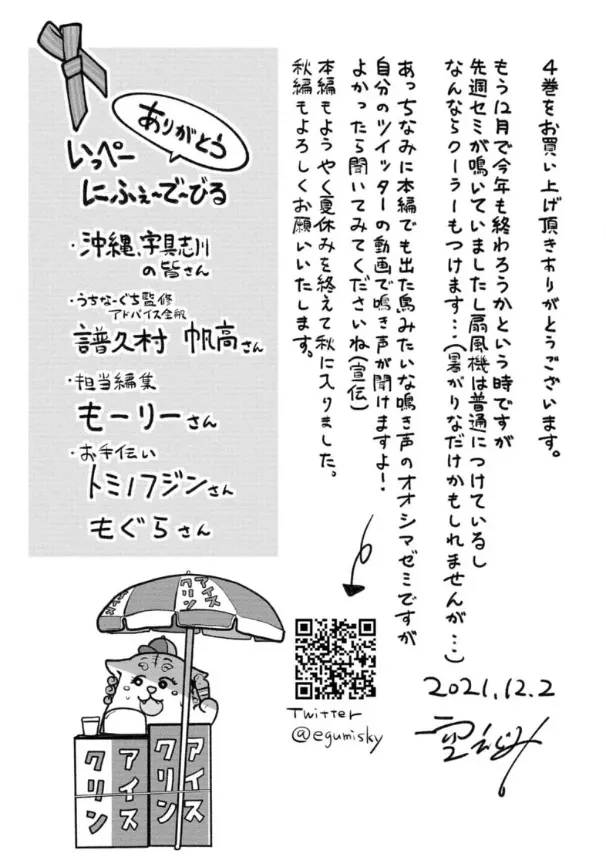 4巻をお買い上げ頂きありがとうございます。
もう12月で今年も終わろうかという時ですが
先週セミが鳴いていましたし扇風機は普通につけているし
なんならクーラーもつけます…(暑がりなだけかもしれませんが…)
あっちなみに本編でも出た鳥みたいな鳴き声のオオシマゼミですが
自分のツイッターの動画で鳴き声が聞けますよ!
よかったら聞いてみてくださいね(宣伝)
本編もようやく夏休みを終えて秋に入りました。
秋編もよろしくお願いいたします。
2021.12.2
空えぐみ
Twitter
@egumisky
ありがとう
いっぺー
にふぇ〜で〜びる
・沖縄、宇具志川
の皆さん
・うちなーぐち監修
アドバイス全般
譜久村 帆高さん
・担当編集
もーりーさん
・お手伝い
トミノフジンさん
もぐらさん
アイス
クリン
アイス
クリン
アイス
クリン